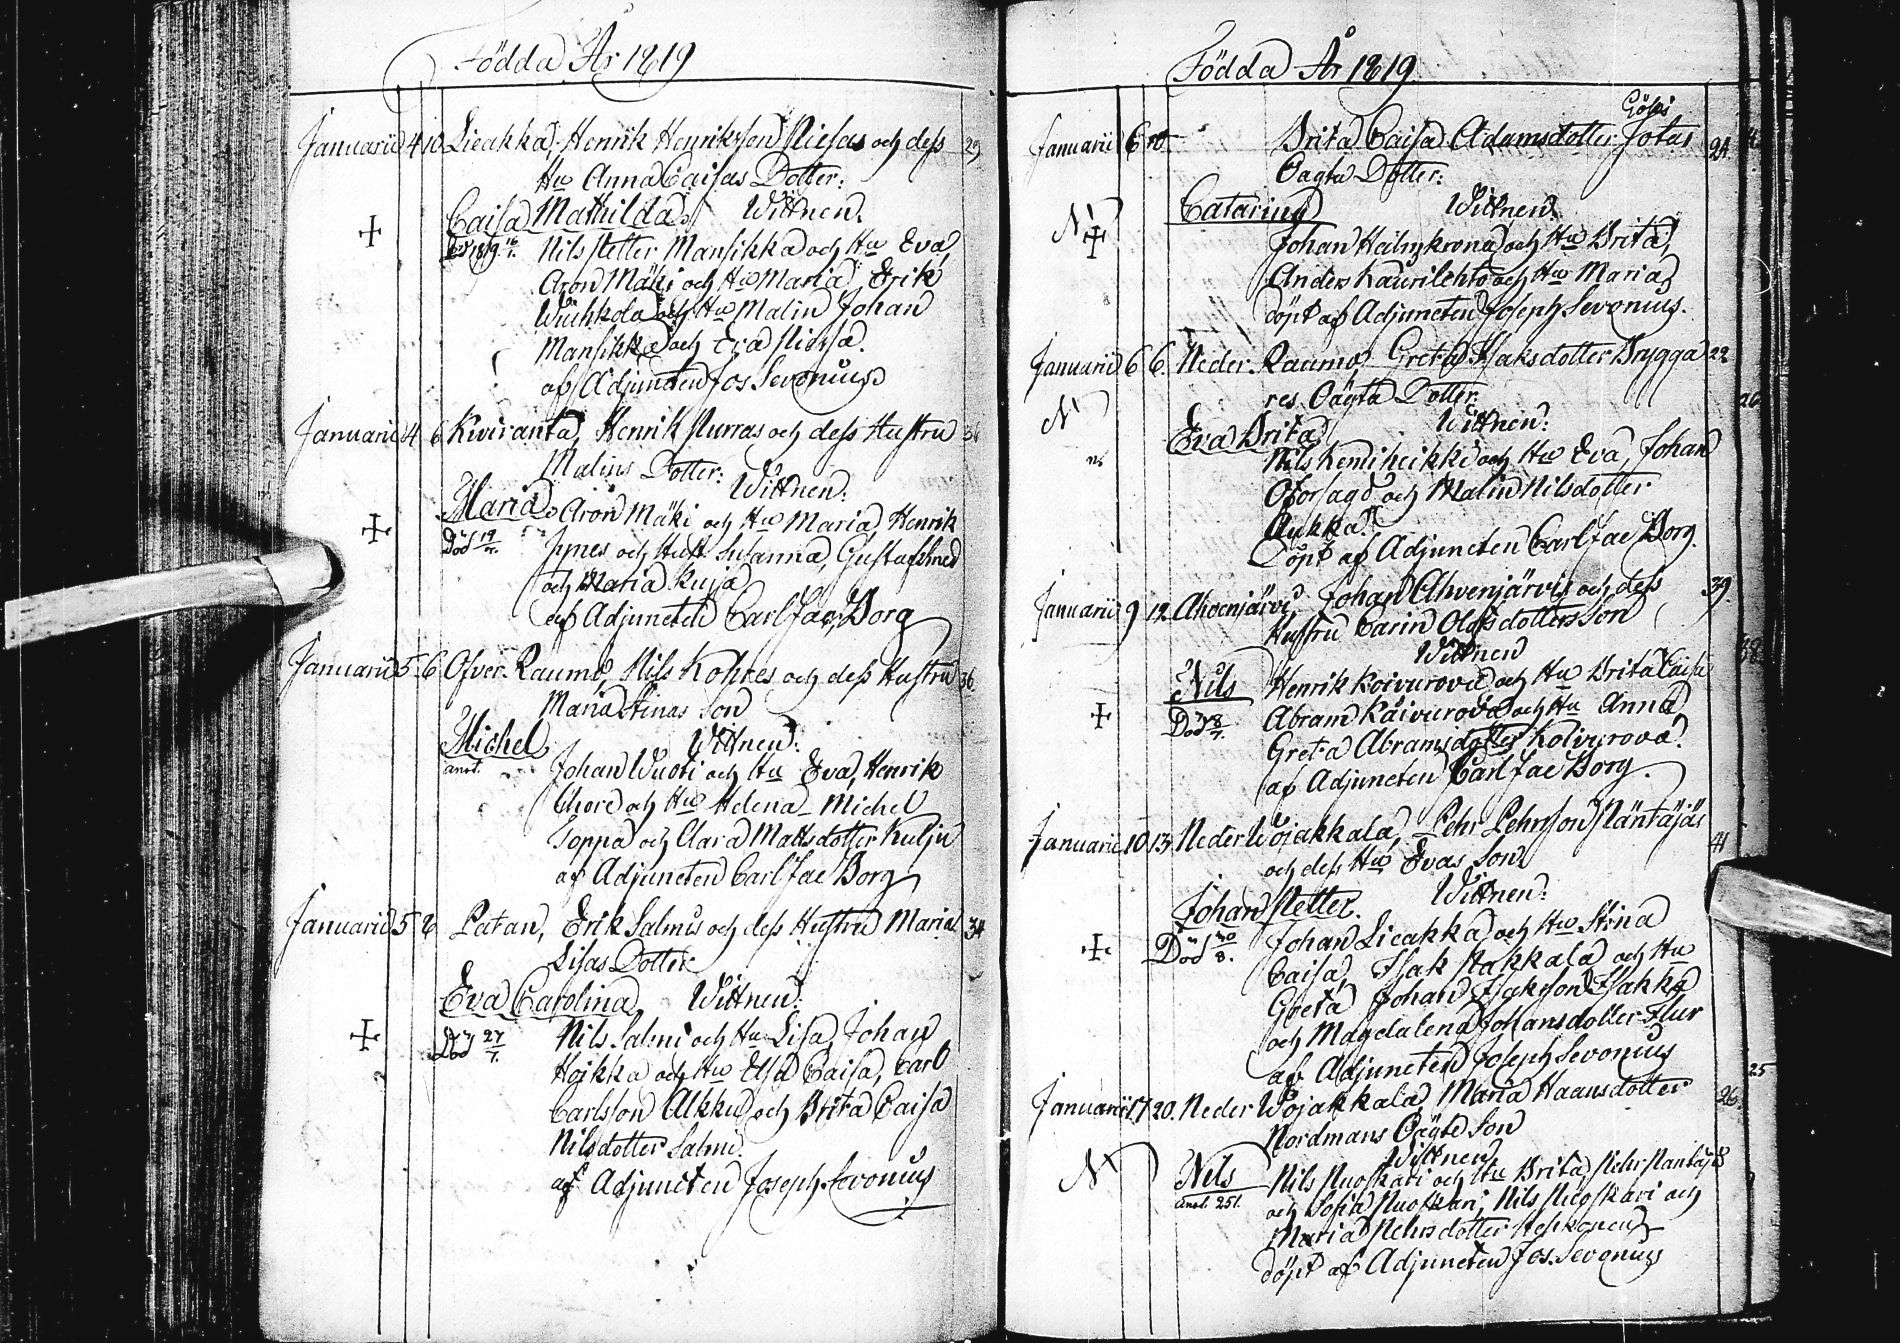 Födda År 1819
Januarii 4 10 Lieakka, Henrik Henriksson Niesas och dess 29
Hu Anna Caisas Dotter:
Caisa Mathilda Wittnen.
Nils Petter Mansikka och Hu Eva,
Aron Mäki och Hu Maria, Erik
och Hu Malin Johan
Mansikka och Eva Niesa.
af Adjuncten Jos Sevonius
Januarii 4 6 Kiviranta, Henrik Purras och dess Hustru
Malins Dotter: Wittnen:
Maria Aron Mäki och Hu Maria, Henrik
Död 19/7. och Hust Susanna, Gustaf
och Maria Kuja
af Adjuncten Carl Jac Borg
Januarii 5 6 Öfver Raumo, Nils Kohres och dess Hustru 36
Maria Stinas Son
Michel Wittnen:
anot. Johan Wuoti och Hu Eva, Henrik
och Hu Helena Michel
Poppa och Clara Matts dotter Kulju
af Adjuncten Carl Jac Borg
Januarii 5 6 Laitan, Erik Salmis och dess Hustru Maria 34
Lisas Dotter
Eva Carolina Wittnen:
Död 27/7. Nils Salmi och Hu Lisa, Johan
Hoikka och Hu Elsa Caisa, Carl
Carlsson Alkku och Brita Caisa
Nilsdotter Salmi.
af Adjuncten Joseph Sevonius
Födda År 1819
Januarii 6 10. Brita Caisa Adamsdotter Jotus 24
Oägta Dotter:
Catarina Wittnen
N Johan Heilmkrona och Hu Brita,
Anders Kaurilehto och Hu Maria
döpt af Adjuncten Joseph Sevonius.
Januarii 6 6. Neder Raumo Greta Isaksdotter Brygga 22
res. Oägta Dotter.
N Eva Brita Wittnen:
Nils Kenttheikki och Hu Eva, Johan
Oforsagd och Malin Nilsdotter
Aukka.
Döpt af Adjuncten Carl Jac Borg.
Januarii 9 12. Ahvenjärvi, Johan Ahvenjärvis och dess 39.
Hustru Carin Olofsdotters Son
Wittnen
Nils Henrik Koivurova och Hu Brita Caisa
Död Abram Koivurova och Hu Anna
Greta Abramsdotter Koivurova.
af Adjuncten Carl Jac Borg.
Januarii 10 13 Neder Wojakkala, Pehr Pehrsson Näntäjäs 41
och dess Hu Evas Son
Johan Petter. Wittnen:
Död Johan Lieakka och Hu Stina
Caisa, Isak Pakkala och Hu
Greta Johan Isaksson Isakka
och Magdalena Johansdotter
af Adjuncten Joseph Sevonius
25
Januarii 17 20. Neder Wojakkala Maria Haansdotter 26.
Nordmans Oägta Son
Wittnen
N Nils Nils Ruoskari och Hu Brita Pehr
anot. 251. och Sofia Ruoskari, Nils Ruoskari och
Maria Pehrsdotter
döpt af Adjuncten Jos. Sevonius